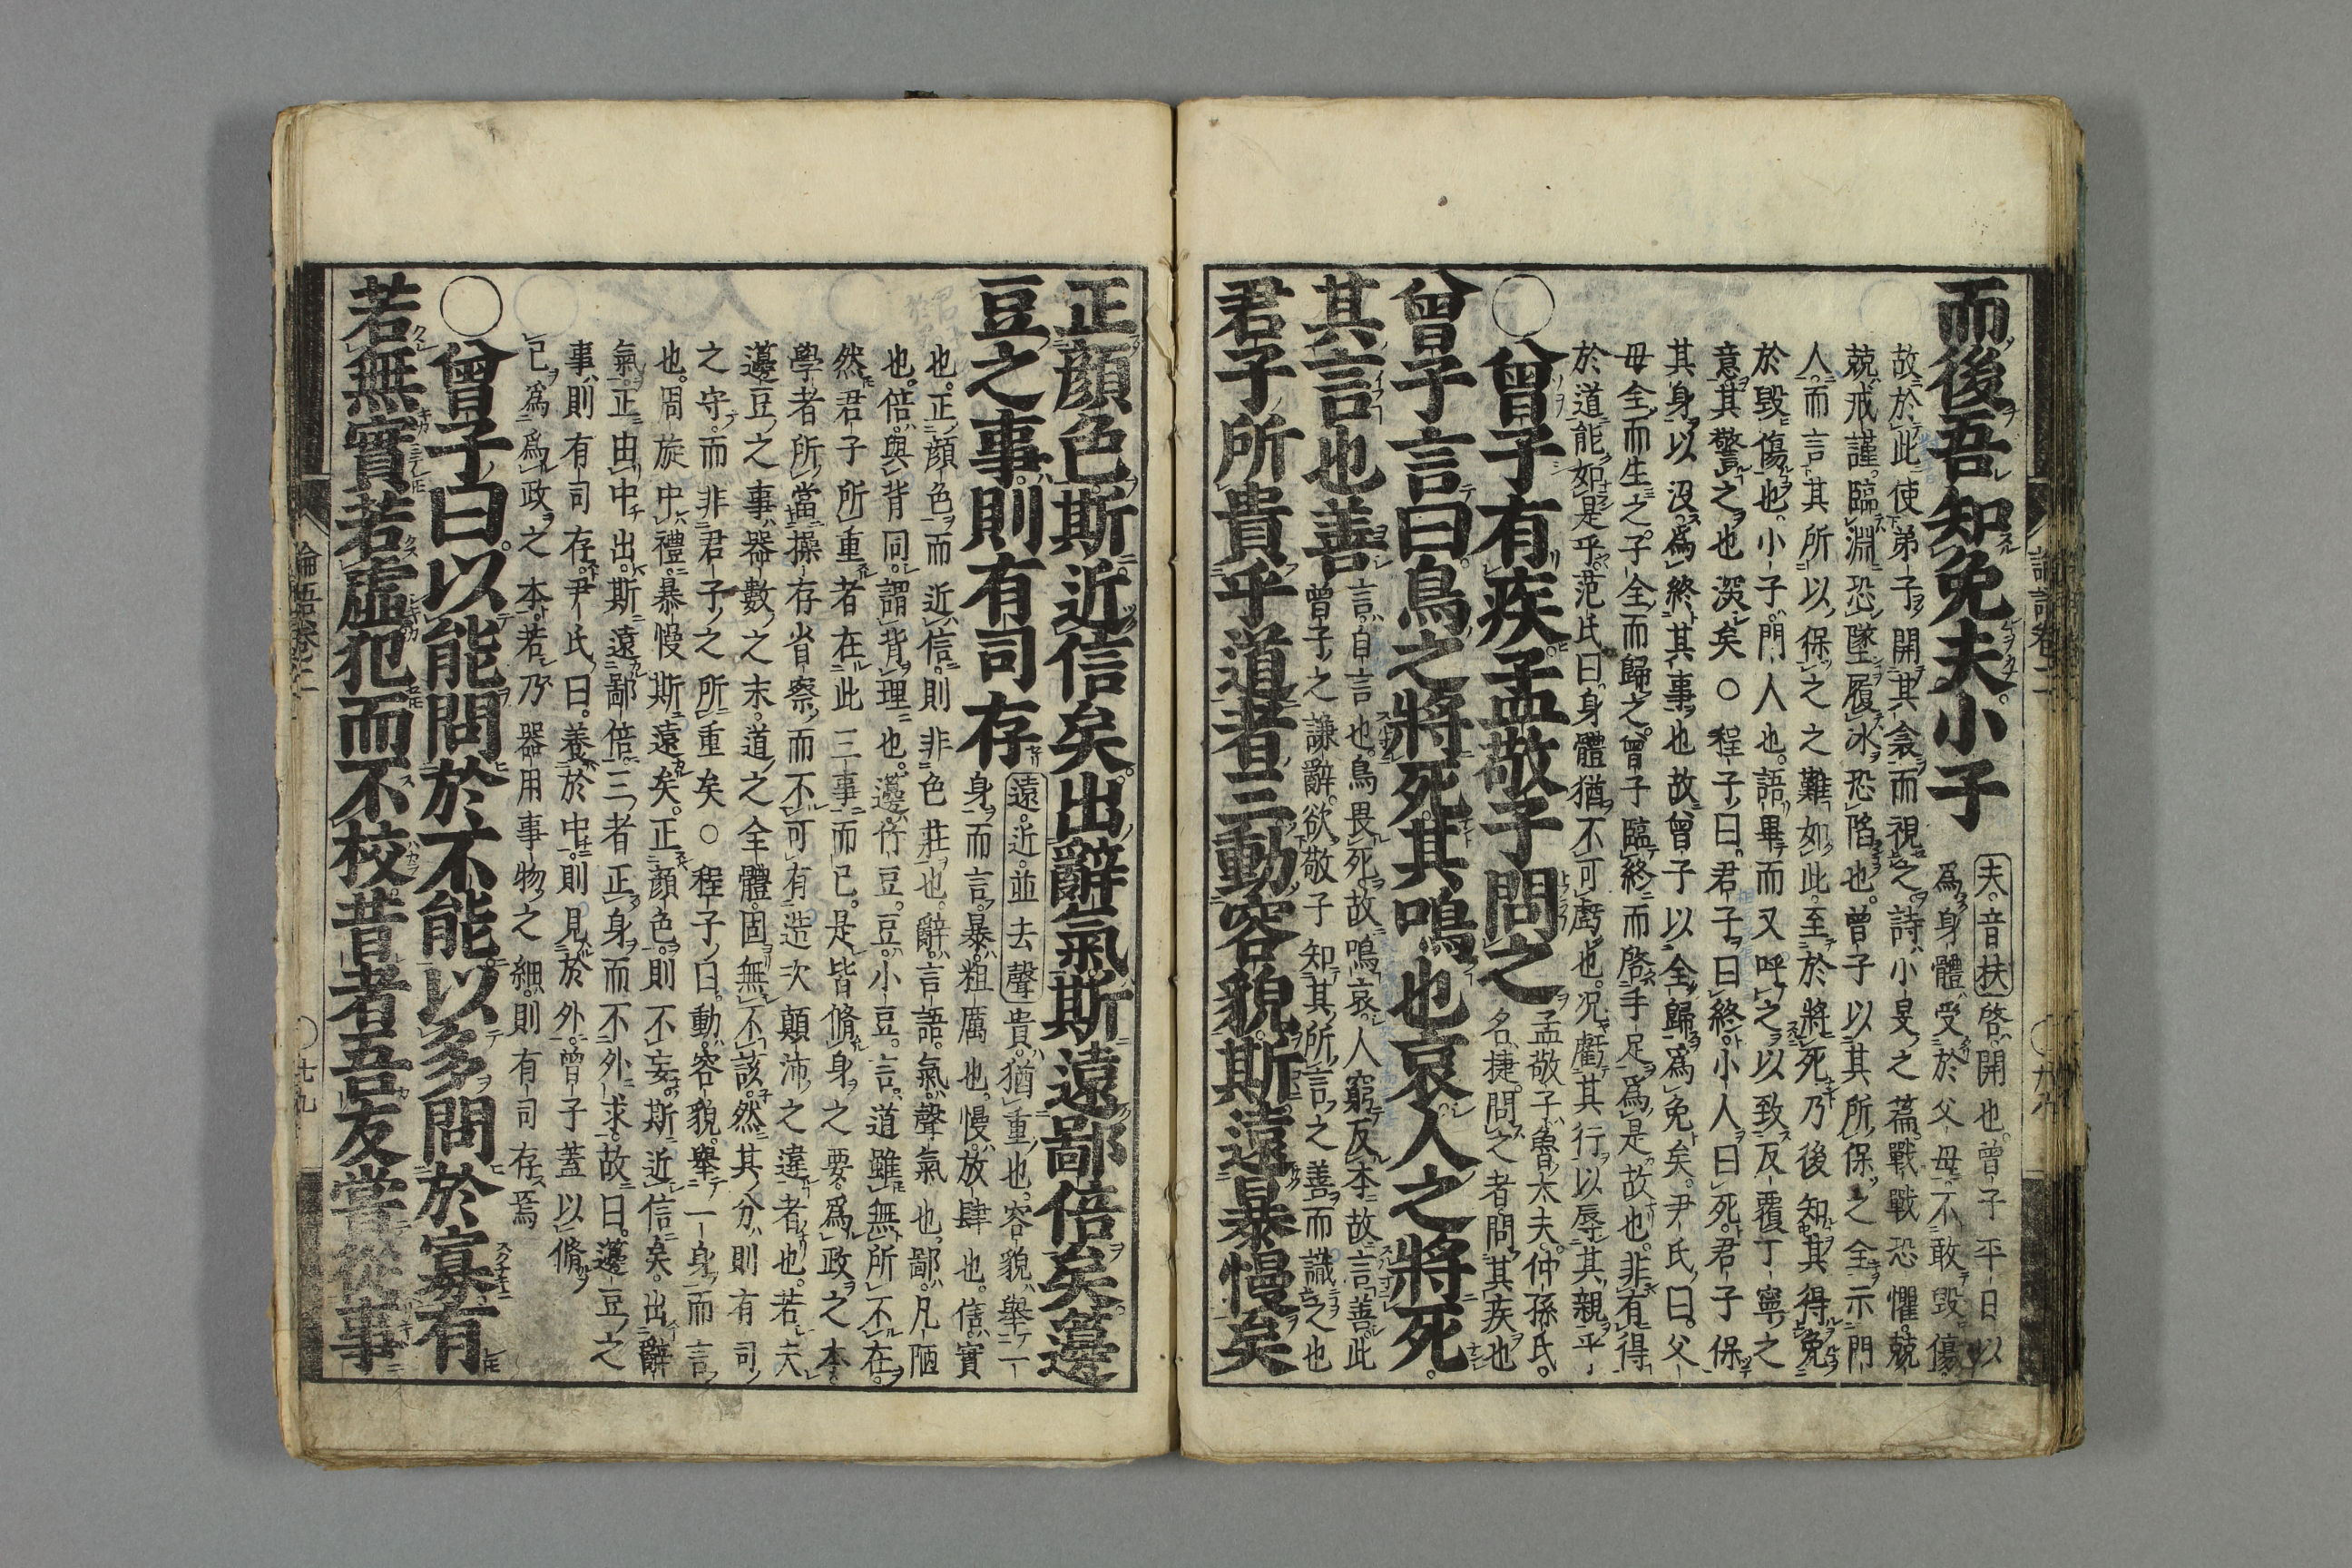 而後吾知免夫小子
夫音扶啓開也曾子平日以
爲身體受於父母不敢毀傷
故於此使弟子開其衾而視之詩小旻之篇戰戰恐懼兢
兢戒謹臨淵恐墜履冰恐陷也曾子以其所保之全示門
人而言其所以保之之難如此至於將死乃後知其得免
於毀傷也小子門人也語畢而又呼之以致反覆丁寧之
意其警之也深矣〇程子曰君子曰終小人曰死君子保
其身以沒爲終其事也故曾子以全歸爲免矣尹氏曰父
母全而生之子全而歸之曾子臨終而啓手足爲是故也非有得
於道能如是乎范氏曰身體猶不可虧也況虧其行以辱其親乎
〇曾子有疾孟敬子問之
孟敬子魯大夫仲孫氏
名捷問之者問其疾也
曾子言曰鳥之將死其鳴也哀人之將死
其言也善
言自言也鳥畏死故鳴哀人窮反本故言善此
曾子之謙辭欲敬子知其所言之善而識之也
君子所貴乎道者三動容貌斯遠暴慢矣
正顏色斯近信矣出辭氣斯遠鄙倍矣籩
豆之事則有司存
遠近並去聲貴猶重也容貌舉一
身而言暴粗厲也慢放肆也信實
也正顏色而近信則非色莊也辭言語氣聲氣也鄙凡陋
也倍與背同謂背理也籩竹豆豆小豆言道雖無所不在
然君子所重者在此三事而已是皆脩身之要爲政之本
學者所當操存省察而不可有造次顛沛之違者也若夫
籩豆之事器數之末道之全體固無不該然其分則有司
之守而非君子之所重矣〇程子曰動容貌舉一身而言
也周旋中禮暴慢斯遠矣正顏色則不妄斯近信矣出辭
氣正由中出斯遠鄙倍三者正身而不外求故曰籩豆之
事則有司存尹氏曰養於中則見於外曾子蓋以脩
己爲爲政之本若乃器用事物之細則有司存焉
〇曾子曰以能問於不能以多問於寡有
若無實若虛犯而不校昔者吾友嘗從事
論語卷二
〇七九